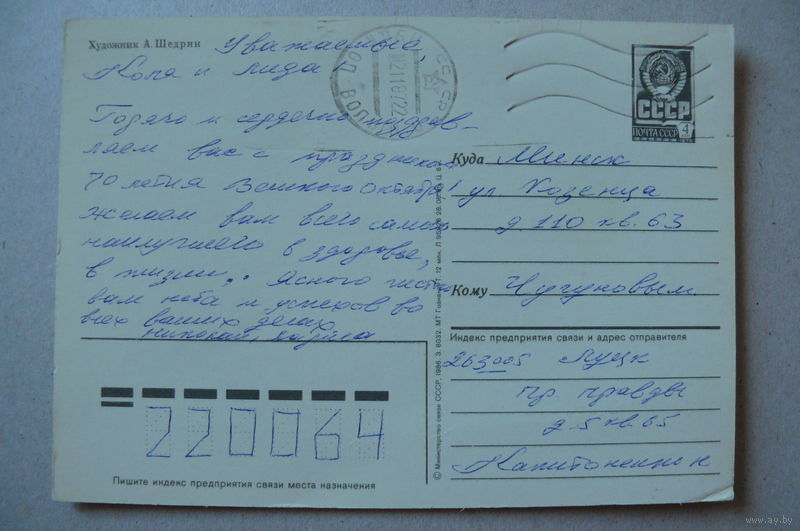 Художник А. Шедрин
Уважаемые
Коля и Лида!
Горячо и сердечно поздрав-
ляем вас с праздником
70 летия Великого Октября!
Желаем вам всего самого
наилучшего в здоровье,
в жизни. Ясного чистого
вам неба и успехов во
всех ваших делах
Николай, Лариса
СССР
ПОЧТА СССР
4
Куда Минск
ул Казенца
д. 110 кв. 63
Кому Чугуновым.
Индекс предприятия связи и адрес отправителя
263005 Луцк
пр. Правды
д 5 кв. 65
220064
Пишите индекс предприятия связи места назначения
© Министерство связи СССР, 1986. З. 8032. МТ Гознака.
www.ay.by